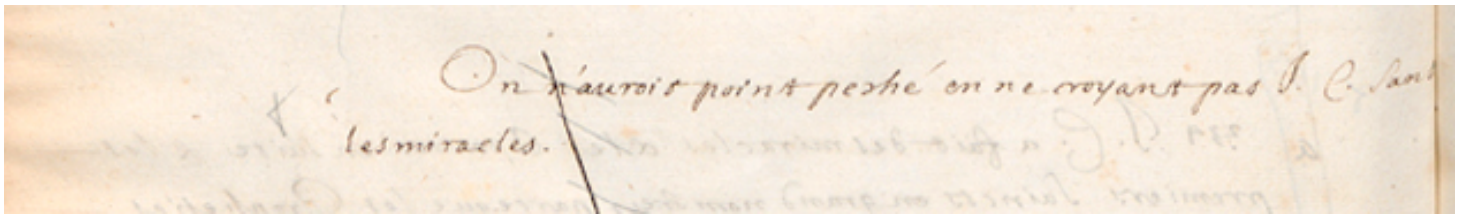 On n'auroit point peché en ne croyant pas J. C. sans
les miracles.